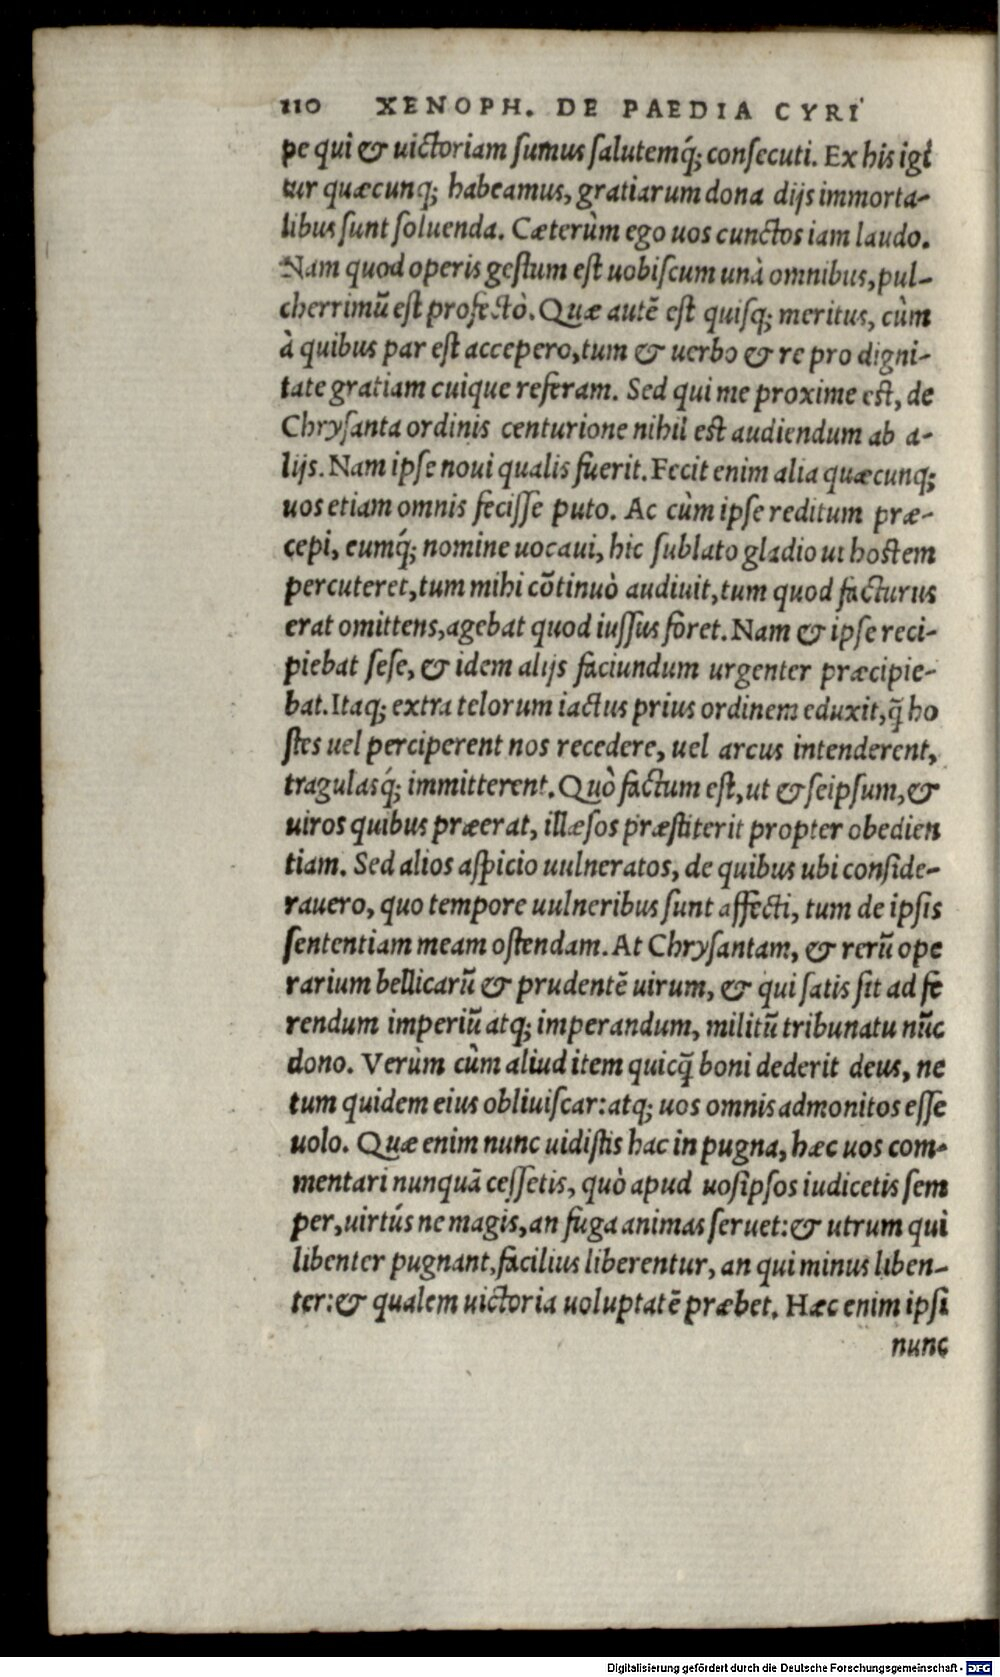 110 XENOPH. DE PAEDIA CYRI
pe qui & uictoriam sumus salutemq́; consecuti. Ex his igi
tur quæcunq; habeamus, gratiarum dona dijs immorta-
libus sunt soluenda. Cæterùm ego uos cunctos iam laudo.
Nam quod operis gestum est uobiscum unà omnibus, pul-
cherrimū est profectò. Quæ autē est quisq; meritus, cùm
à quibus par est accepero, tum & uerbo & re pro digni-
tate gratiam cuique referam. Sed qui me proxime est, de
Chrysanta ordinis centurione nihil est audiendum ab a-
lijs. Nam ipse noui qualis fuerit. Fecit enim alia quæcunq;
uos etiam omnis fecisse puto. Ac cùm ipse reditum præ-
cepi, eumq́; nomine uocaui, hic sublato gladio ut hostem
percuteret, tum mihi cōtinuò audiuit, tum quod facturus
erat omittens, agebat quod iussus foret. Nam & ipse reci-
piebat sese, & idem alijs faciundum urgenter præcipie-
bat. Itaq; extra telorum iactus prius ordinem eduxit, q̄ ho
stes uel perciperent nos recedere, uel arcus intenderent,
tragulasq́; immitterent. Quò factum est, ut & seipsum, &
uiros quibus præerat, illæsos præstiterit propter obedien
tiam. Sed alios aspicio uulneratos, de quibus ubi conside-
rauero, quo tempore uulneribus sunt affecti, tum de ipsis
sententiam meam ostendam. At Chrysantam, & rerū ope
rarium bellicarū & prudentē uirum, & qui satis sit ad fe
rendum imperiū atq; imperandum, militū tribunatu nūc
dono. Verùm cùm aliud item quicq̄ boni dederit deus, ne
tum quidem eius obliuiscar: atq; uos omnis admonitos esse
uolo. Quæ enim nunc uidistis hac in pugna, hæc uos com-
mentari nunquā cessetis, quò apud uosipsos iudicetis sem
per, uirtús ne magis, an fuga animas seruet: & utrum qui
libenter pugnant, facilius liberentur, an qui minus liben-
ter: & qualem uictoria uoluptatē præbet. Hæc enim ipsi
nunc
Digitalisierung gefördert durch die Deutsche Forschungsgemeinschaft - DFG